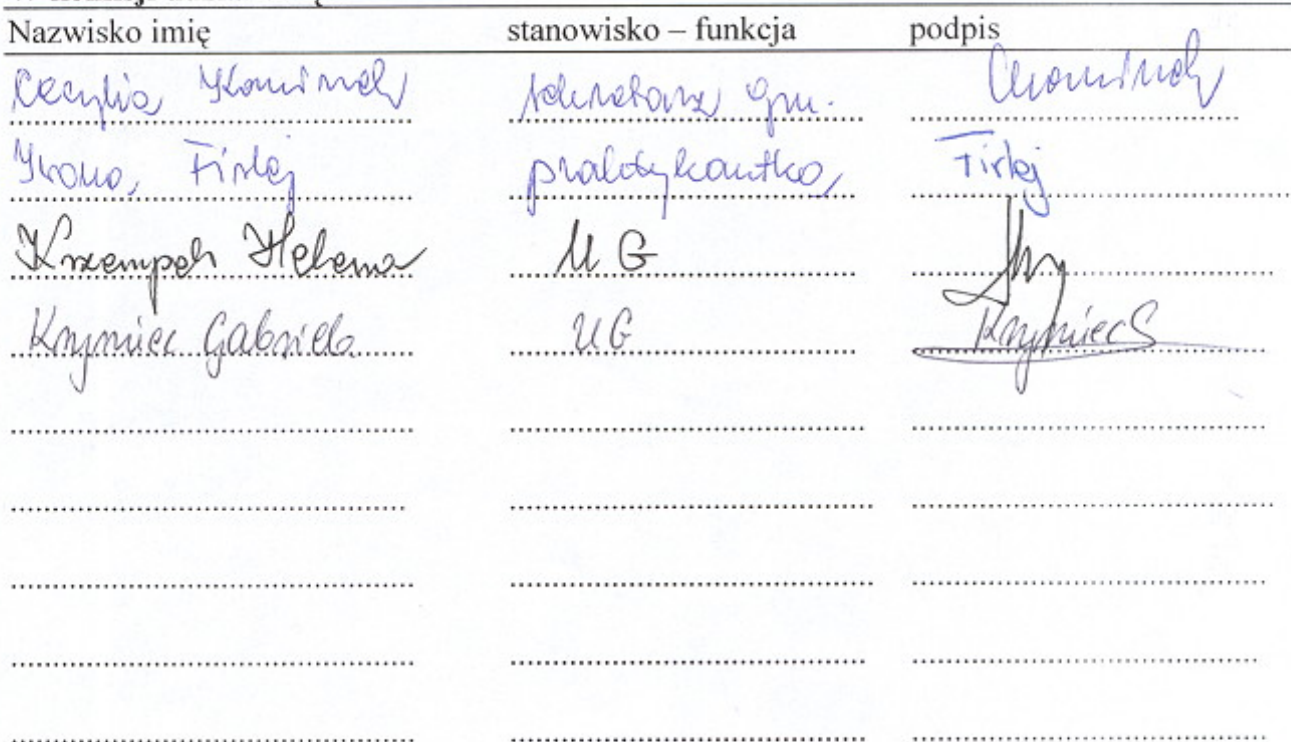 Nazwisko imię stanowisko – funkcja podpis
Cecylia Kominek sekretarz gm.
Iwona Firlej praktykantka Firlej
Krzempek Helena UG
Krzymiec Gabriela UG Krzymiec G